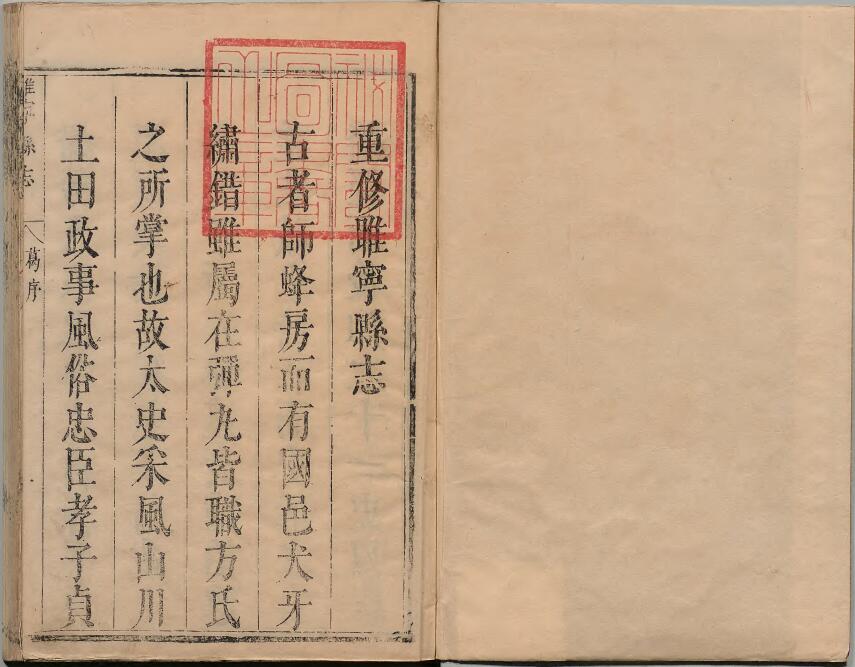 重修睢寧縣志
古者師蜂房而有國邑犬牙
繡錯雖屬在彈丸皆職方氏
之所掌也故太史采風山川
土田政事風俗忠臣孝子貞
睢寧縣志 葛序